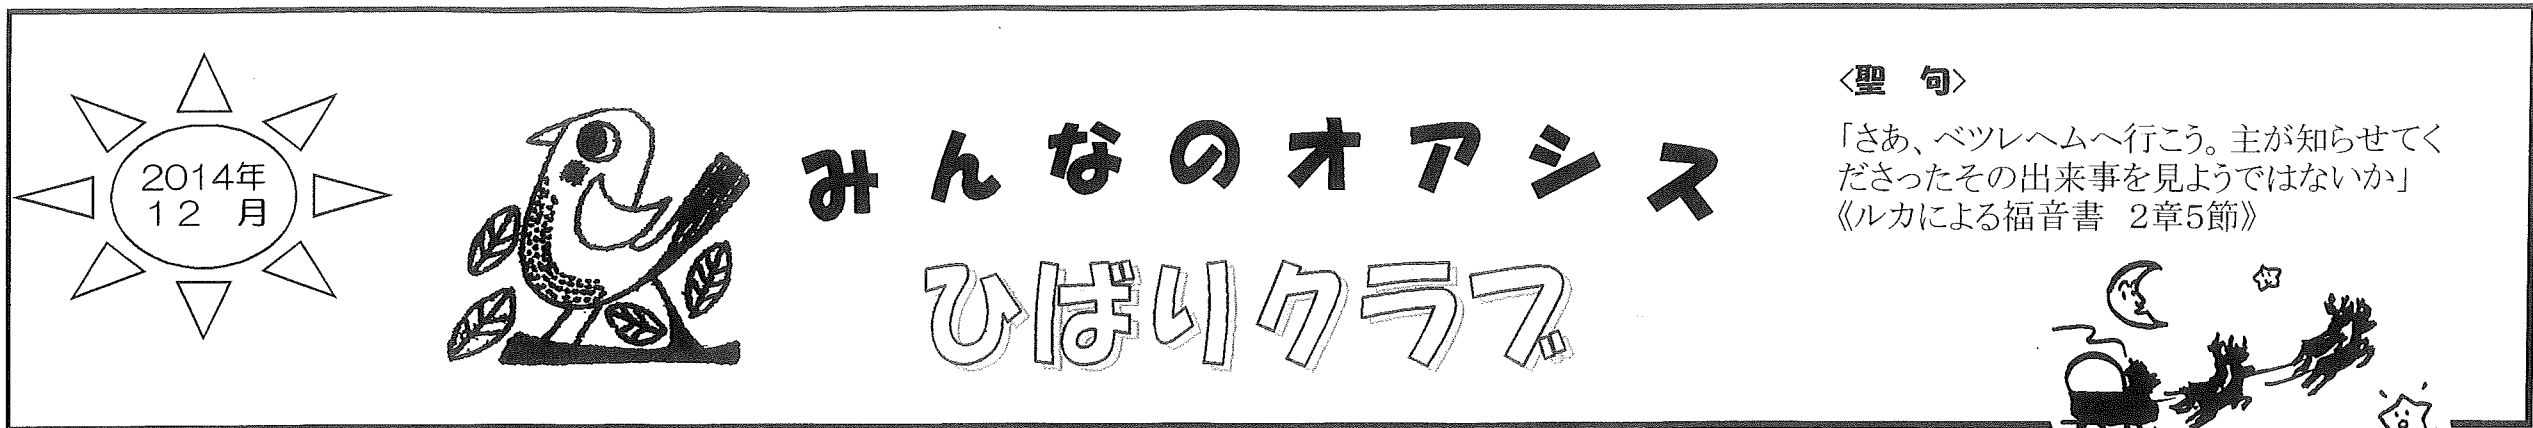 2014年
12 月
みんなのオアシス
ひばりクラブ
〈聖 句〉
「さあ、ベツレヘムへ行こう。主が知らせてく
ださったその出来事を見ようではないか」
《ルカによる福音書 2章5節》